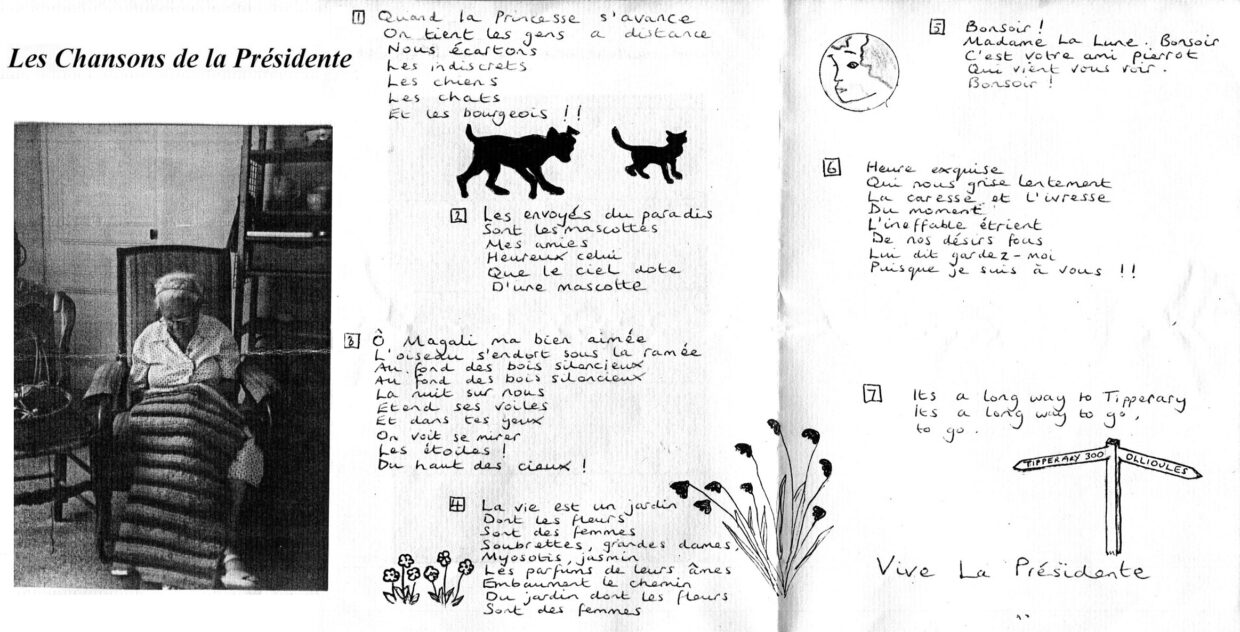 Les Chansons de la Présidente
1 Quand la Princesse s'avance
On tient les gens a distance
Nous écartons
Les indiscrets
Les chiens
Les chats
Et les bourgeois !!
2 Les envoyés du paradis
Sont les mascottes
Mes amies
Heureux celui
Que le ciel dote
D'une mascotte
3 Ô Magali ma bien aimée
L'oiseau s'endort sous la ramée
Au fond des bois silencieux
Au fond des bois silencieux
La nuit sur nous
Etend ses voiles
Et dans tes yeux
On voit se mirer
Les étoiles !
Du haut des cieux !
4 La vie est un jardin
Dont les fleurs
Sont des femmes
Soubrettes, grandes dames,
Myosotis, jasmin
Les parfums de leurs âmes
Embaument le chemin
Du jardin dont les fleurs
Sont des femmes
5 Bonsoir !
Madame La Lune. Bonsoir
C'est votre ami pierrot
Qui vient vous voir.
Bonsoir !
6 Heure exquise
Qui nous grise lentement
La caresse et l'ivresse
Du moment
L'ineffable étrient
De nos désirs fous
Lui dit gardez-moi
Puisque je suis à vous !!
7 Its a long way to Tipperary
Its a long way to go,
to go.
TIPPERARY 300
OLLIOULES
Vive La Présidente